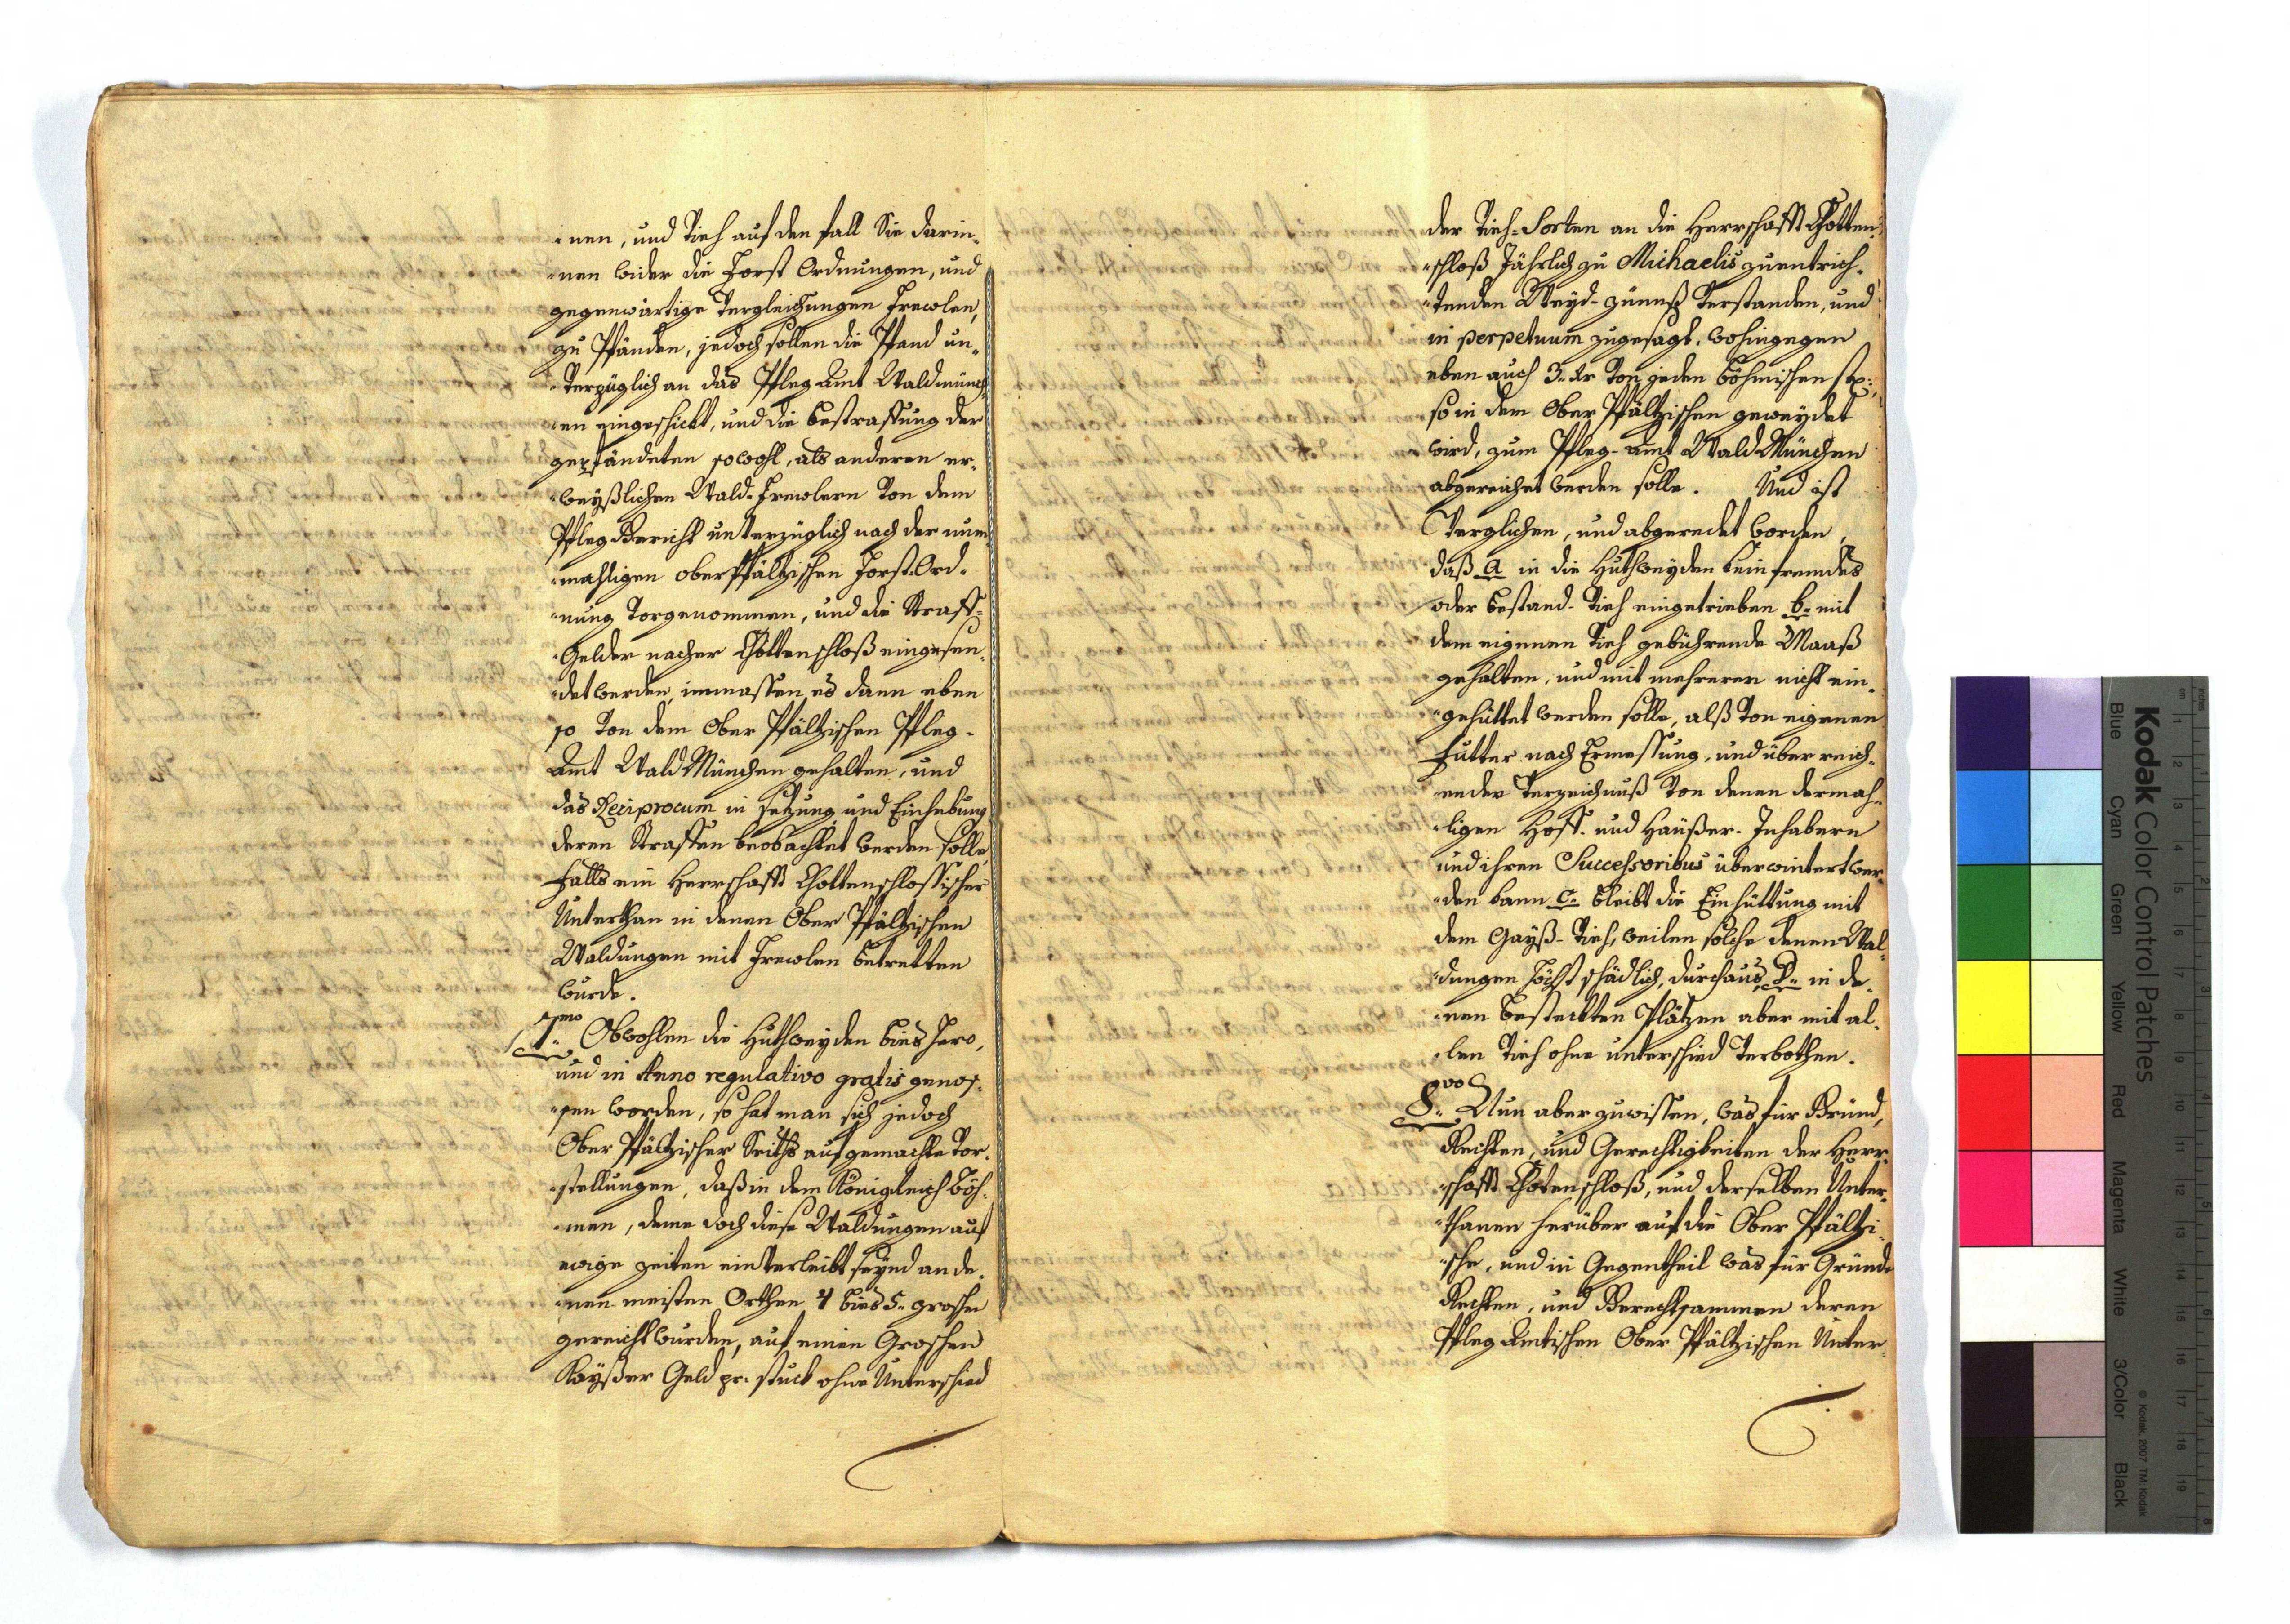 nen, und Vieh auf den fall Sie darin-
nen wider die Forst Ordnungen, und
gegenwärtige Vergleichungen Frevlen,
zu Pfänden, jedoch sollen die Pfand un-
Verzüglich an das Pfleg Amt Waldmünch
en eingeschickt, und die bestraffung der
gepfändeten sowohl, als anderen er-
weyßlichen Wald-Frevlern Von dem
Pfleg Gericht unVerzüglich nach der nun
mahligen oberPfältzischen Forst-Ord-
nung Vorgenommen, und die Straff-
Gelder nacher Chottenschloß eingesen-
det werden, immassen es dann eben
so Von dem Ober Pfältzischen Pfleg-
Amt Wald München gehalten, und
das Reciprocum in setzung und Einhebung
deren Straffen beobachtet werden solle,
falls ein Herrschafft Chottenschlossischer
Unterthan in denen Ober Pfältzischen
Waldungen mit Frevlen betretten
wurde.
7mo Obwohlen die Huthweyden bies hero,
und in Anno regulativo gratis genos-
sen worden, so hat man sich jedoch
Ober Pfältzischer Seiths auf gemachte Vor-
stellungen, daß in dem Königreich Böh-
men, deme doch diese Waldungen auf
ewige zeiten einVerleibt seynd an de-
nen meisten Orthen 4 bies 5. groschen
gereicht wurden, auf einen Groschen
Kayßer Geld pr. stuck ohne Unterschied
der Vieh-Sorten an die Herrschafft Chotten-
schloß Jährlich zu Michaelis zuentrich-
tenden Weyd-zünnß Verstanden, und
in perpetuum zugesagt, wohingegen
eben auch 3. kr Von jeden böhmischen
so in dem Ober Pfältzischen geweydet
wird, zum Pfleg-amt Wald München
abgereichet werden solle. Und ist
Verglichen, und abgeredet worden,
daß a in die Huthweyden kein fremdes
oder bestand-Vieh eingetrieben b. mit
dem eigenen Vieh gebührende Maaß
gehalten, und mit mehreren nicht ein-
gehüttet werden solle, alß Von eigenen
Futter nach Ermessung, und über reich-
ender Verzeichnuß Von denen dermah-
ligen Hoff- und Häußer-Inhabern
und ihren Successoribus überwintert wer-
den kann c. bleibt die Einhüttung mit
dem Gayß-Vieh, weilen solche denen Wal-
dungen höchst schädlich, durchaus, D. in de-
nen besteckten Plätzen aber mit al-
len Vieh ohne unterschied Verbothen.
8vo Nun aber zuwissen, was für Gründ,
Rechten, und Gerechtigkeiten der Herr-
schafft Chotenschloß, und derselben Unter-
thanen herüber auf die Ober Pfältzi-
sche, und in Gegentheil was für Gründe
Rechten, und Gerechtsammen deren
Pfleg Amtischen Ober Pfältzischen Unter-
Kodak Color Control Patches
Blue Cyan Green Yellow Red Magenta White 3/Color Black
© Kodak, 2007 TM: Kodak